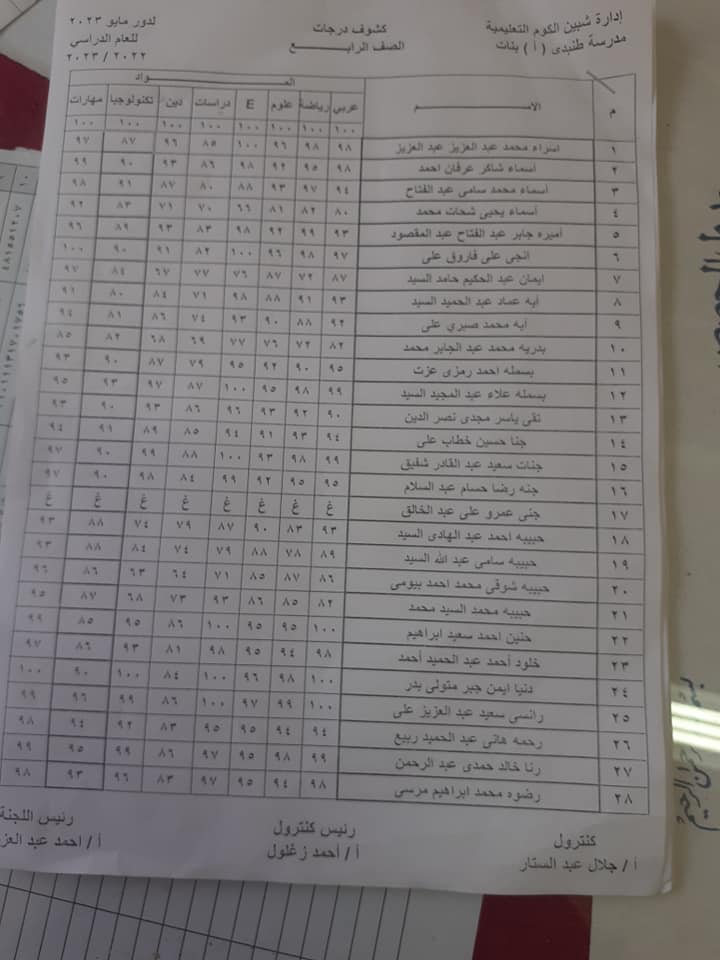 إدارة شبين الكوم التعليمية
مدرسة طنبدى (أ) بنات
كشوف درجات
الصف الرابع
لدور مايو ٢٠٢٣
للعام الدراسي
٢٠٢٣ / ٢٠٢٢
م الاســم المــواد
عربي رياضة علوم E دراسات دين تكنولوجيا مهارات
١٠٠ ١٠٠ ١٠٠ ١٠٠ ١٠٠ ١٠٠ ١٠٠ ١٠٠
١ اسراء محمد عبد العزيز عبد العزيز ٩٨ ٩٨ ٩٦ ١٠٠ ٨٥ ٩٦ ٨٧ ٩٧
٢ أسماء شاكر عرفان احمد ٩٨ ٩٥ ٩٢ ٩٨ ٨٦ ٩٣ ٩٠ ٩٩
٣ أسماء محمد سامى عبد الفتاح ٩٤ ٩٧ ٩٣ ٨٨ ٨٠ ٨٧ ٩١ ٩٨
٤ أسماء يحيى شحات محمد ٨٠ ٨٢ ٨١ ٦٦ ٧٠ ٧١ ٨٣ ٩٢
٥ أميره جابر عبد الفتاح عبد المقصود ٩٣ ٩٩ ٩٢ ٩٨ ٨٣ ٩٣ ٨٩ ٩٦
٦ انجى على فاروق على ٩٧ ٩٨ ٩٦ ١٠٠ ٨٢ ٩١ ٩٠ ١٠٠
٧ ايمان عبد الحكيم حامد السيد ٨٧ ٧٢ ٨٧ ٧٦ ٧٧ ٦٧ ٨٤ ٩٧
٨ أيه عماد عبد الحميد السيد ٩٣ ٩١ ٨٨ ٩٨ ٧١ ٨٤ ٨٠ ٩١
٩ أيه محمد صبري على ٩٢ ٨٨ ٩٠ ٩٣ ٧٤ ٨٦ ٨١ ٩٤
١٠ بدريه محمد عبد الجابر محمد ٨٢ ٧٢ ٧٦ ٧٧ ٦٩ ٦٨ ٨٢ ٨٥
١١ بسمله احمد رمزى عزت ٩٥ ٩٠ ٩٢ ٩٥ ٧٩ ٨٧ ٩٠ ٩٣
١٢ بسمله علاء عبد المجيد السيد ٩٩ ٩٨ ٩٥ ١٠٠ ٨٧ ٩٧ ٩٣ ٩٥
١٣ تقى ياسر مجدى نصر الدين ٩٠ ٩٢ ٩٣ ٩٦ ٨٦ ٩٣ ٩٠ ٩٣
١٤ جنا حسين خطاب على ٩٤ ٩٣ ٩١ ٩٤ ٨٥ ٨٩ ٩١ ٩٤
١٥ جنات سعيد عبد القادر شفيق ٩٩ ٩٨ ٩٣ ١٠٠ ٨٨ ٩٩ ٩٠ ٩٧
١٦ جنه رضا حسام عبد السلام ٩٥ ٩٥ ٩٢ ٩٩ ٨٤ ٩٨ ٩٠ ٩٧
١٧ جنى عمرو على عبد الخالق غ غ غ غ غ غ غ غ
١٨ حبيبه احمد عبد الهادى السيد ٩٣ ٨٣ ٩٠ ٨٧ ٧٩ ٧٤ ٨٨ ٩٣
١٩ حبيبه سامى عبد الله السيد ٨٩ ٧٨ ٨٨ ٧٩ ٧٤ ٨٤ ٨٨ ٩٣
٢٠ حبيبه شوقى محمد احمد بيومى ٨٦ ٨٧ ٨٥ ٧١ ٦٤ ٦٣ ٨٦ ٩٦
٢١ حبيبه محمد السيد محمد ٨٢ ٨٥ ٨٦ ٩٣ ٧٣ ٦٨ ٨٧ ٩٥
٢٢ حنين احمد سعيد ابراهيم ١٠٠ ٩٥ ٩٥ ١٠٠ ٨٦ ٩٥ ٨٥ ٩٩
٢٣ خلود أحمد عبد الحميد أحمد ٩٨ ٩٤ ٩٥ ٩٨ ٨١ ٩٣ ٨٦ ٩٧
٢٤ دنيا ايمن جبر متولى بدر ١٠٠ ٩٨ ٩٦ ١٠٠ ٨٤ ١٠٠ ٩٠ ١٠٠
٢٥ رانسى سعيد عبد العزيز على ١٠٠ ٩٩ ٩٧ ١٠٠ ٨٦ ٩٩ ٩٦ ٩٩
٢٦ رحمه هانى عبد الحميد ربيع ٩٤ ٩٤ ٩٥ ٩٥ ٨٣ ٩٢ ٩٤ ٩٨
٢٧ رنا خالد حمدى عبد الرحمن ٩٩ ٩٨ ٩٥ ٩٧ ٨٦ ٩٩ ٩٥ ٩٩
٢٨ رضوه محمد ابراهيم مرسى ٩٨ ٩٤ ٩٥ ٩٧ ٨٣ ٩٦ ٩٣ ٩٨
كنترول
أ / جلال عبد الستار
رئيس كنترول
أ / أحمد زغلول
رئيس اللجنة
أ / احمد عبد العز